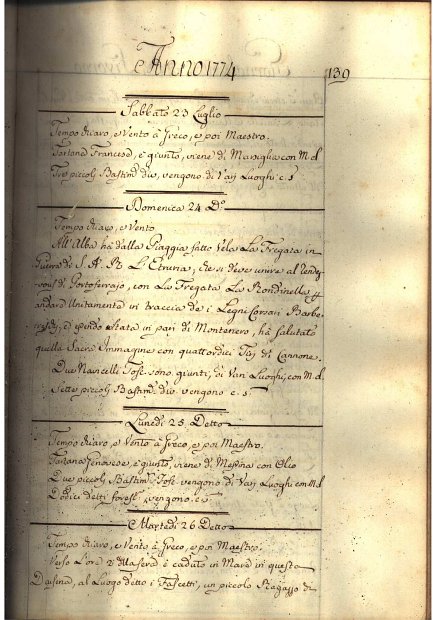 Anno 1774
139
Sabbato 23 Luglio
Tempo chiaro, e Vento à Greco, e poi Maestro.
Tartana Francese, è giunta, viene di Marsiglia con M.d
Tre piccoli Bastim.ti div. vengono di Varj Luoghi c. s.
Domenica 24 D.o
Tempo chiaro, e Vento
All'Alba ha dalla Piaggia fatto Vela La Fregata in
Guerra di S. A. R. L'Etruria, che si deve unire al Rendez-
vous di Portoferrajo, con La Fregata La Rondinella p
andare Unitamente in traccia de i Legni Corsari Barbe-
reschi, e essendo stata in pari di Montenero, hà salutato
quella Sacra Immagine con quattordici Tiri di Cannone.
Due Navicelli Tosc. sono giunti, di Varj Luoghi, con M.d
Sette piccoli Bastim.ti div. vengono c. s.
Lunedi 25 Detto
Tempo chiaro, e Vento à Greco, e poi Maestro.
Tartana Genovese, è giunta, viene di Messina con Olio
Due piccoli Bastim.ti Tosc. vengono di Varj Luoghi con M.d
Dodici detti, vengono c. s.
Martedi 26 Detto
Tempo chiaro, e Vento à Greco, e poi Maestro.
Verso L'ore 2 è caduto in Mare in questa
Darsina, al Luogo detto i Fascetti, un piccolo Ragazzo di